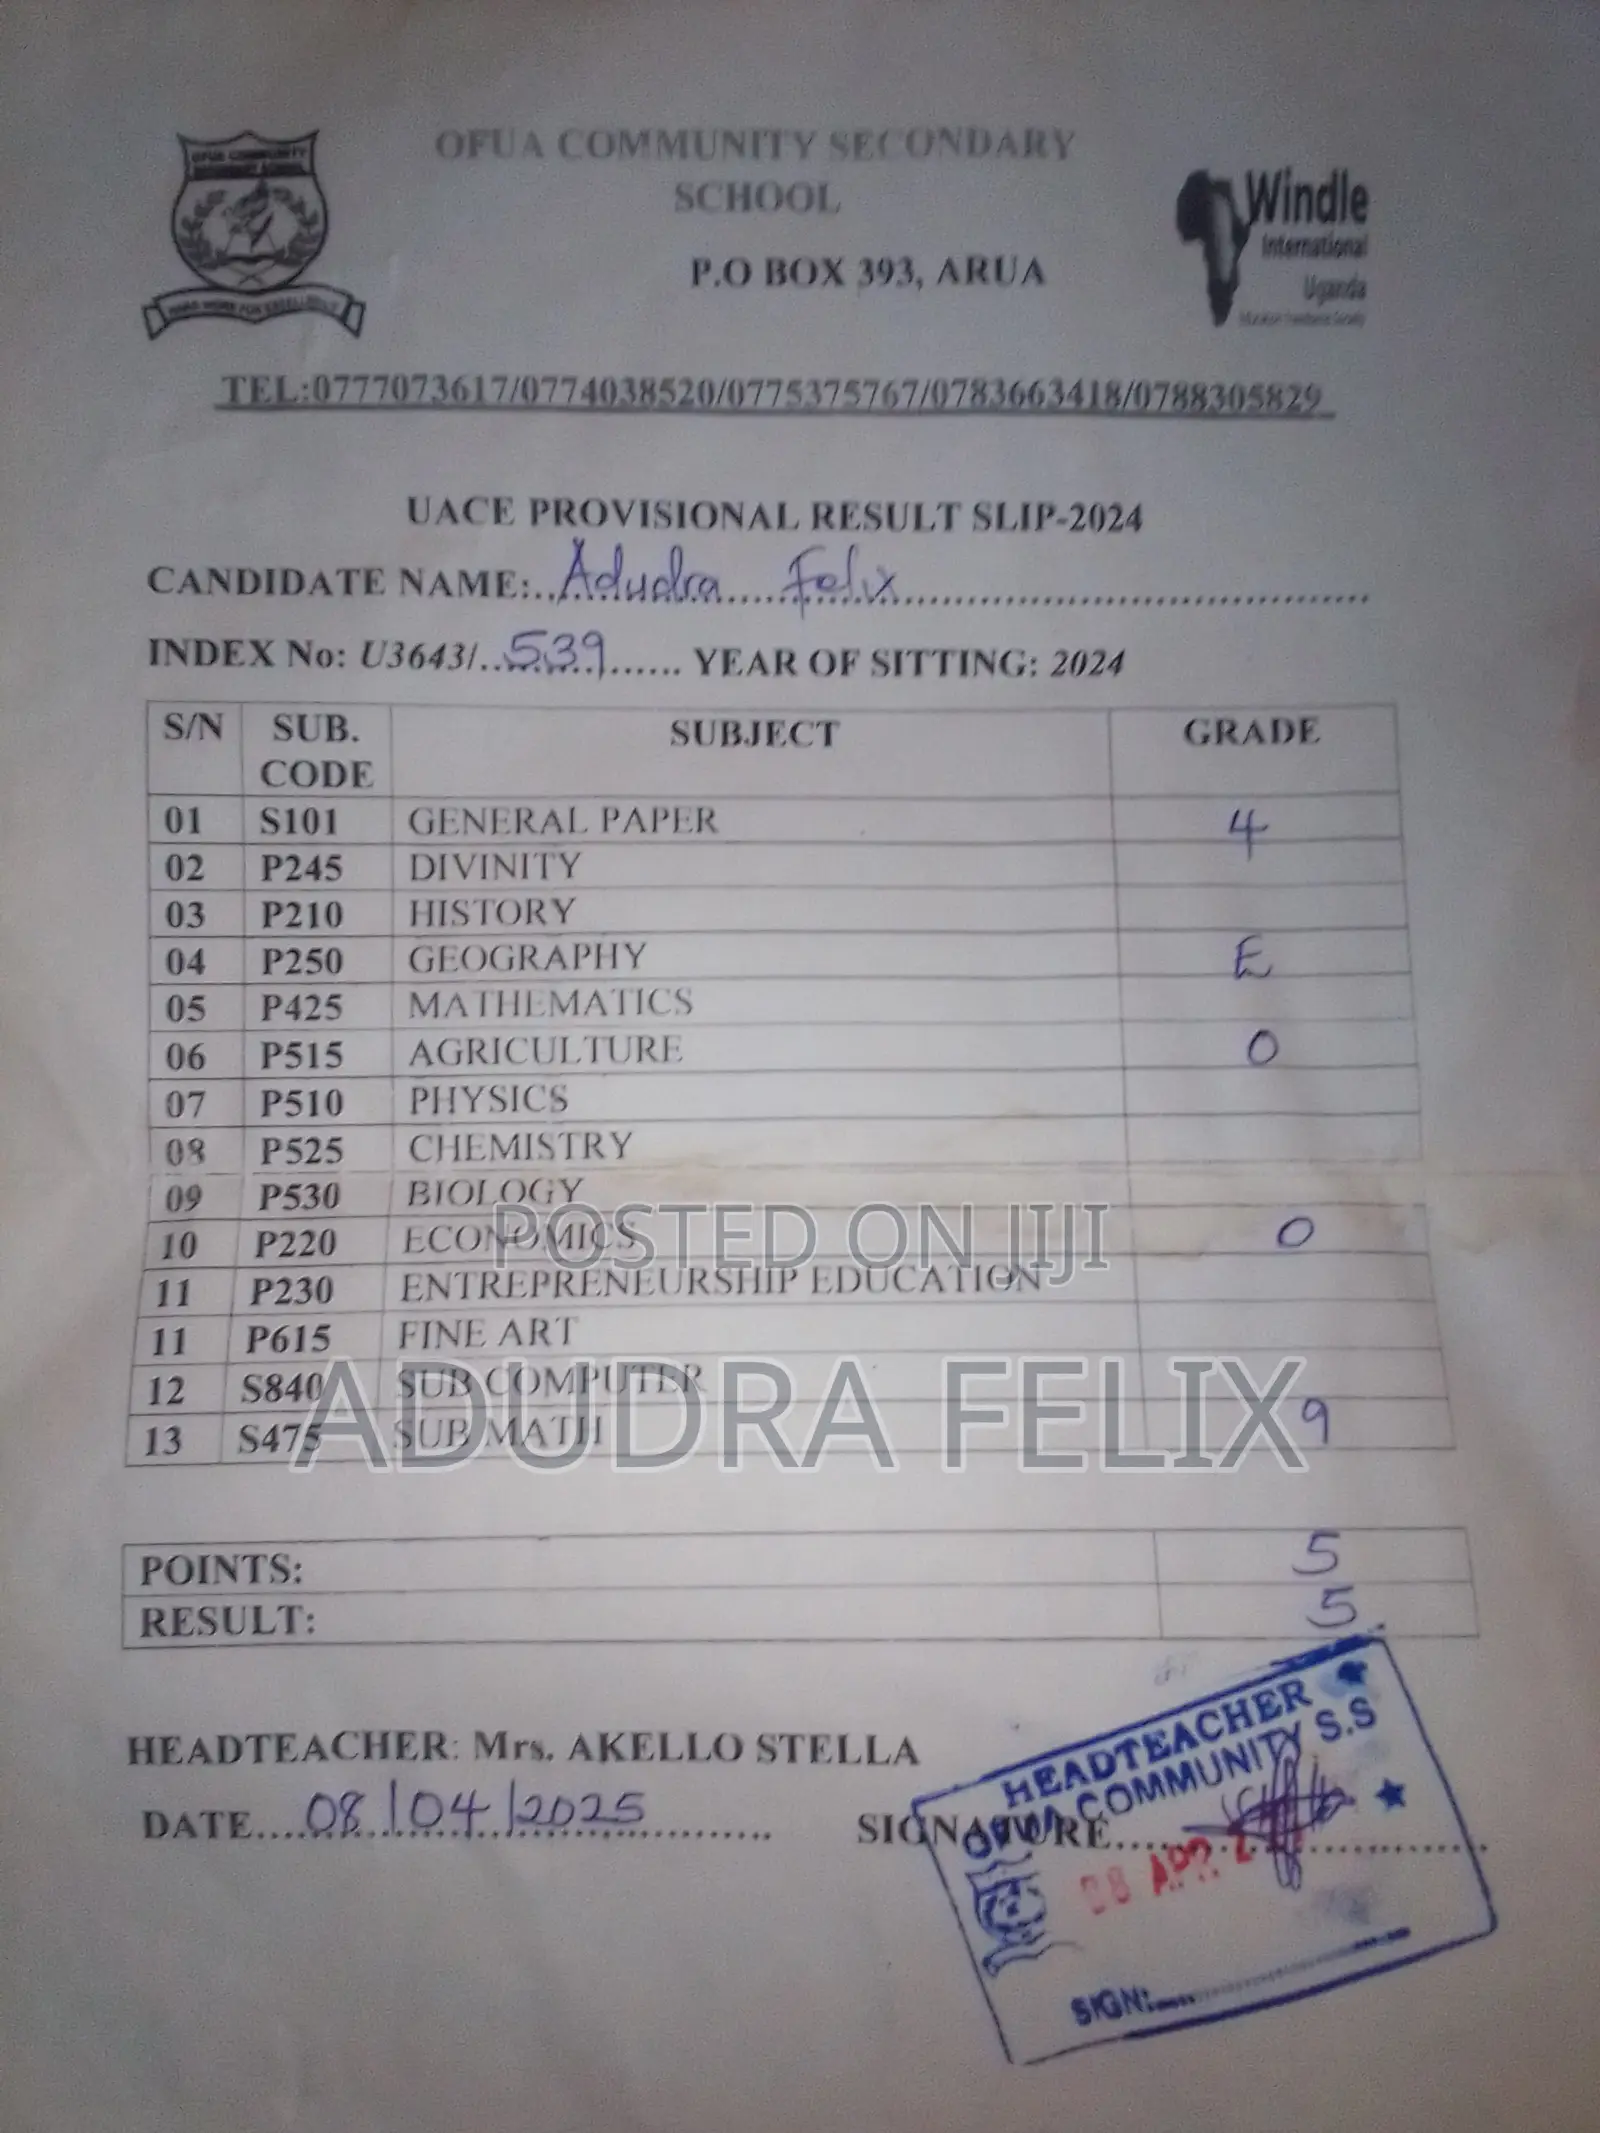 OFUA COMMUNITY SECONDARY SCHOOL
OFUA COMMUNITY SECONDARY
SCHOOL
P.O BOX 393, ARUA
HARD WORK FOR EXCELLENCE
Windle
International
Uganda
TEL:0777073617/0774038520/0775375767/0783663418/0788305829
UACE PROVISIONAL RESULT SLIP-2024
CANDIDATE NAME:..Adudra....Felix....................................
INDEX No: U3643/..539...... YEAR OF SITTING: 2024
S/N SUB. CODE SUBJECT GRADE
01 S101 GENERAL PAPER 4
02 P245 DIVINITY
03 P210 HISTORY
04 P250 GEOGRAPHY E
05 P425 MATHEMATICS
06 P515 AGRICULTURE O
07 P510 PHYSICS
08 P525 CHEMISTRY
09 P530 BIOLOGY
10 P220 ECONOMICS O
11 P230 ENTREPRENEURSHIP EDUCATION
11 P615 FINE ART
12 S840 SUB COMPUTER
13 S475 SUB MATH 9
POSTED ON JIJI
ADUDRA FELIX
POINTS: 5
RESULT: 5
HEADTEACHER: Mrs. AKELLO STELLA
DATE....08/04/2025..........
SIGNATURE..............................
HEADTEACHER
OFUA COMMUNITY S.S
08 APR 2
SIGN:........................